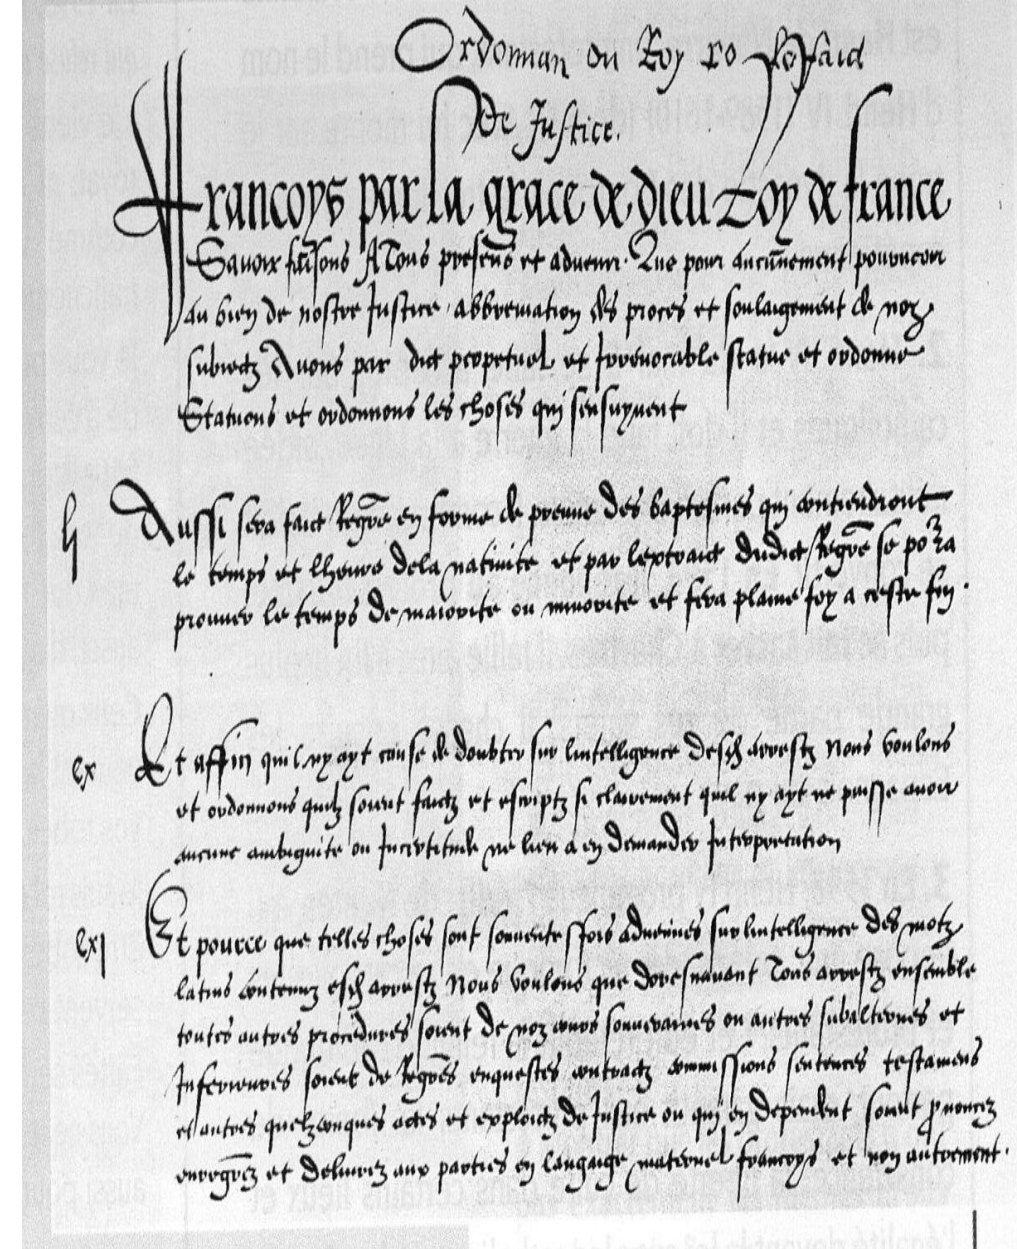 Ordonnan du Roy
de Justice.
francoys par la grace de dieu Roy de france
Savoir faisons A Tous presens et advenir. Que pour aucunement pourveoir
au bien de nostre Justice abbreviation des proces et soulaigement de noz
subiectz Avons par dict perpetuel et Irrevocable statue et ordonne
Statuons et ordonnons les choses qui sensuyvent
lj
Aussi sera faict Regre en forme de preuve des baptesmes qui contiendront
le temps et lheure dela nativite et par lextraict dudict Regre se pora
prouver le temps de maiorite ou minorite et fera plaine foy a ceste fin.
cx
Et affin quil ny ayt cause de doubter sur lintelligence desd arrestz Nous voulons
et ordonnons quilz soient faictz et escriptz si clairement quil ny ayt ne puisse avoir
aucune ambiguite ou Incertitude ne lieu a en demander Interpretation
cxj
Et pource que telles choses sont souventeffois advenues sur lintelligence des motz
latins contenuz esd arrestz Nous voulons que doresnavant Tous arrestz ensemble
toutes autres procedures soient de noz cours souveraines ou autres subalternes et
Inferieures soient de Regres enquestes contractz commissions sentences testamens
et autres quelzconques actes et exploictz de Justice ou qui en dependent soient pnoncez
enregrez et delivrez aux parties en langaige maternel francoys et non autrement.